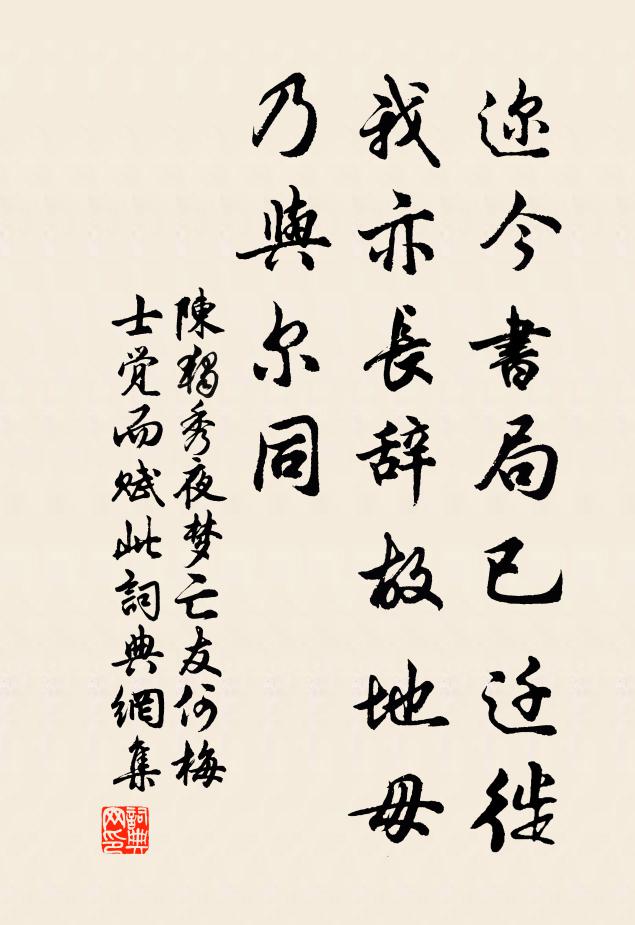 迩今書局已迁徙
我亦長辞故地毋
乃與尔同
陳獨秀夜梦亡友何梅
士觉而赋此詞典網集
詞典
网印